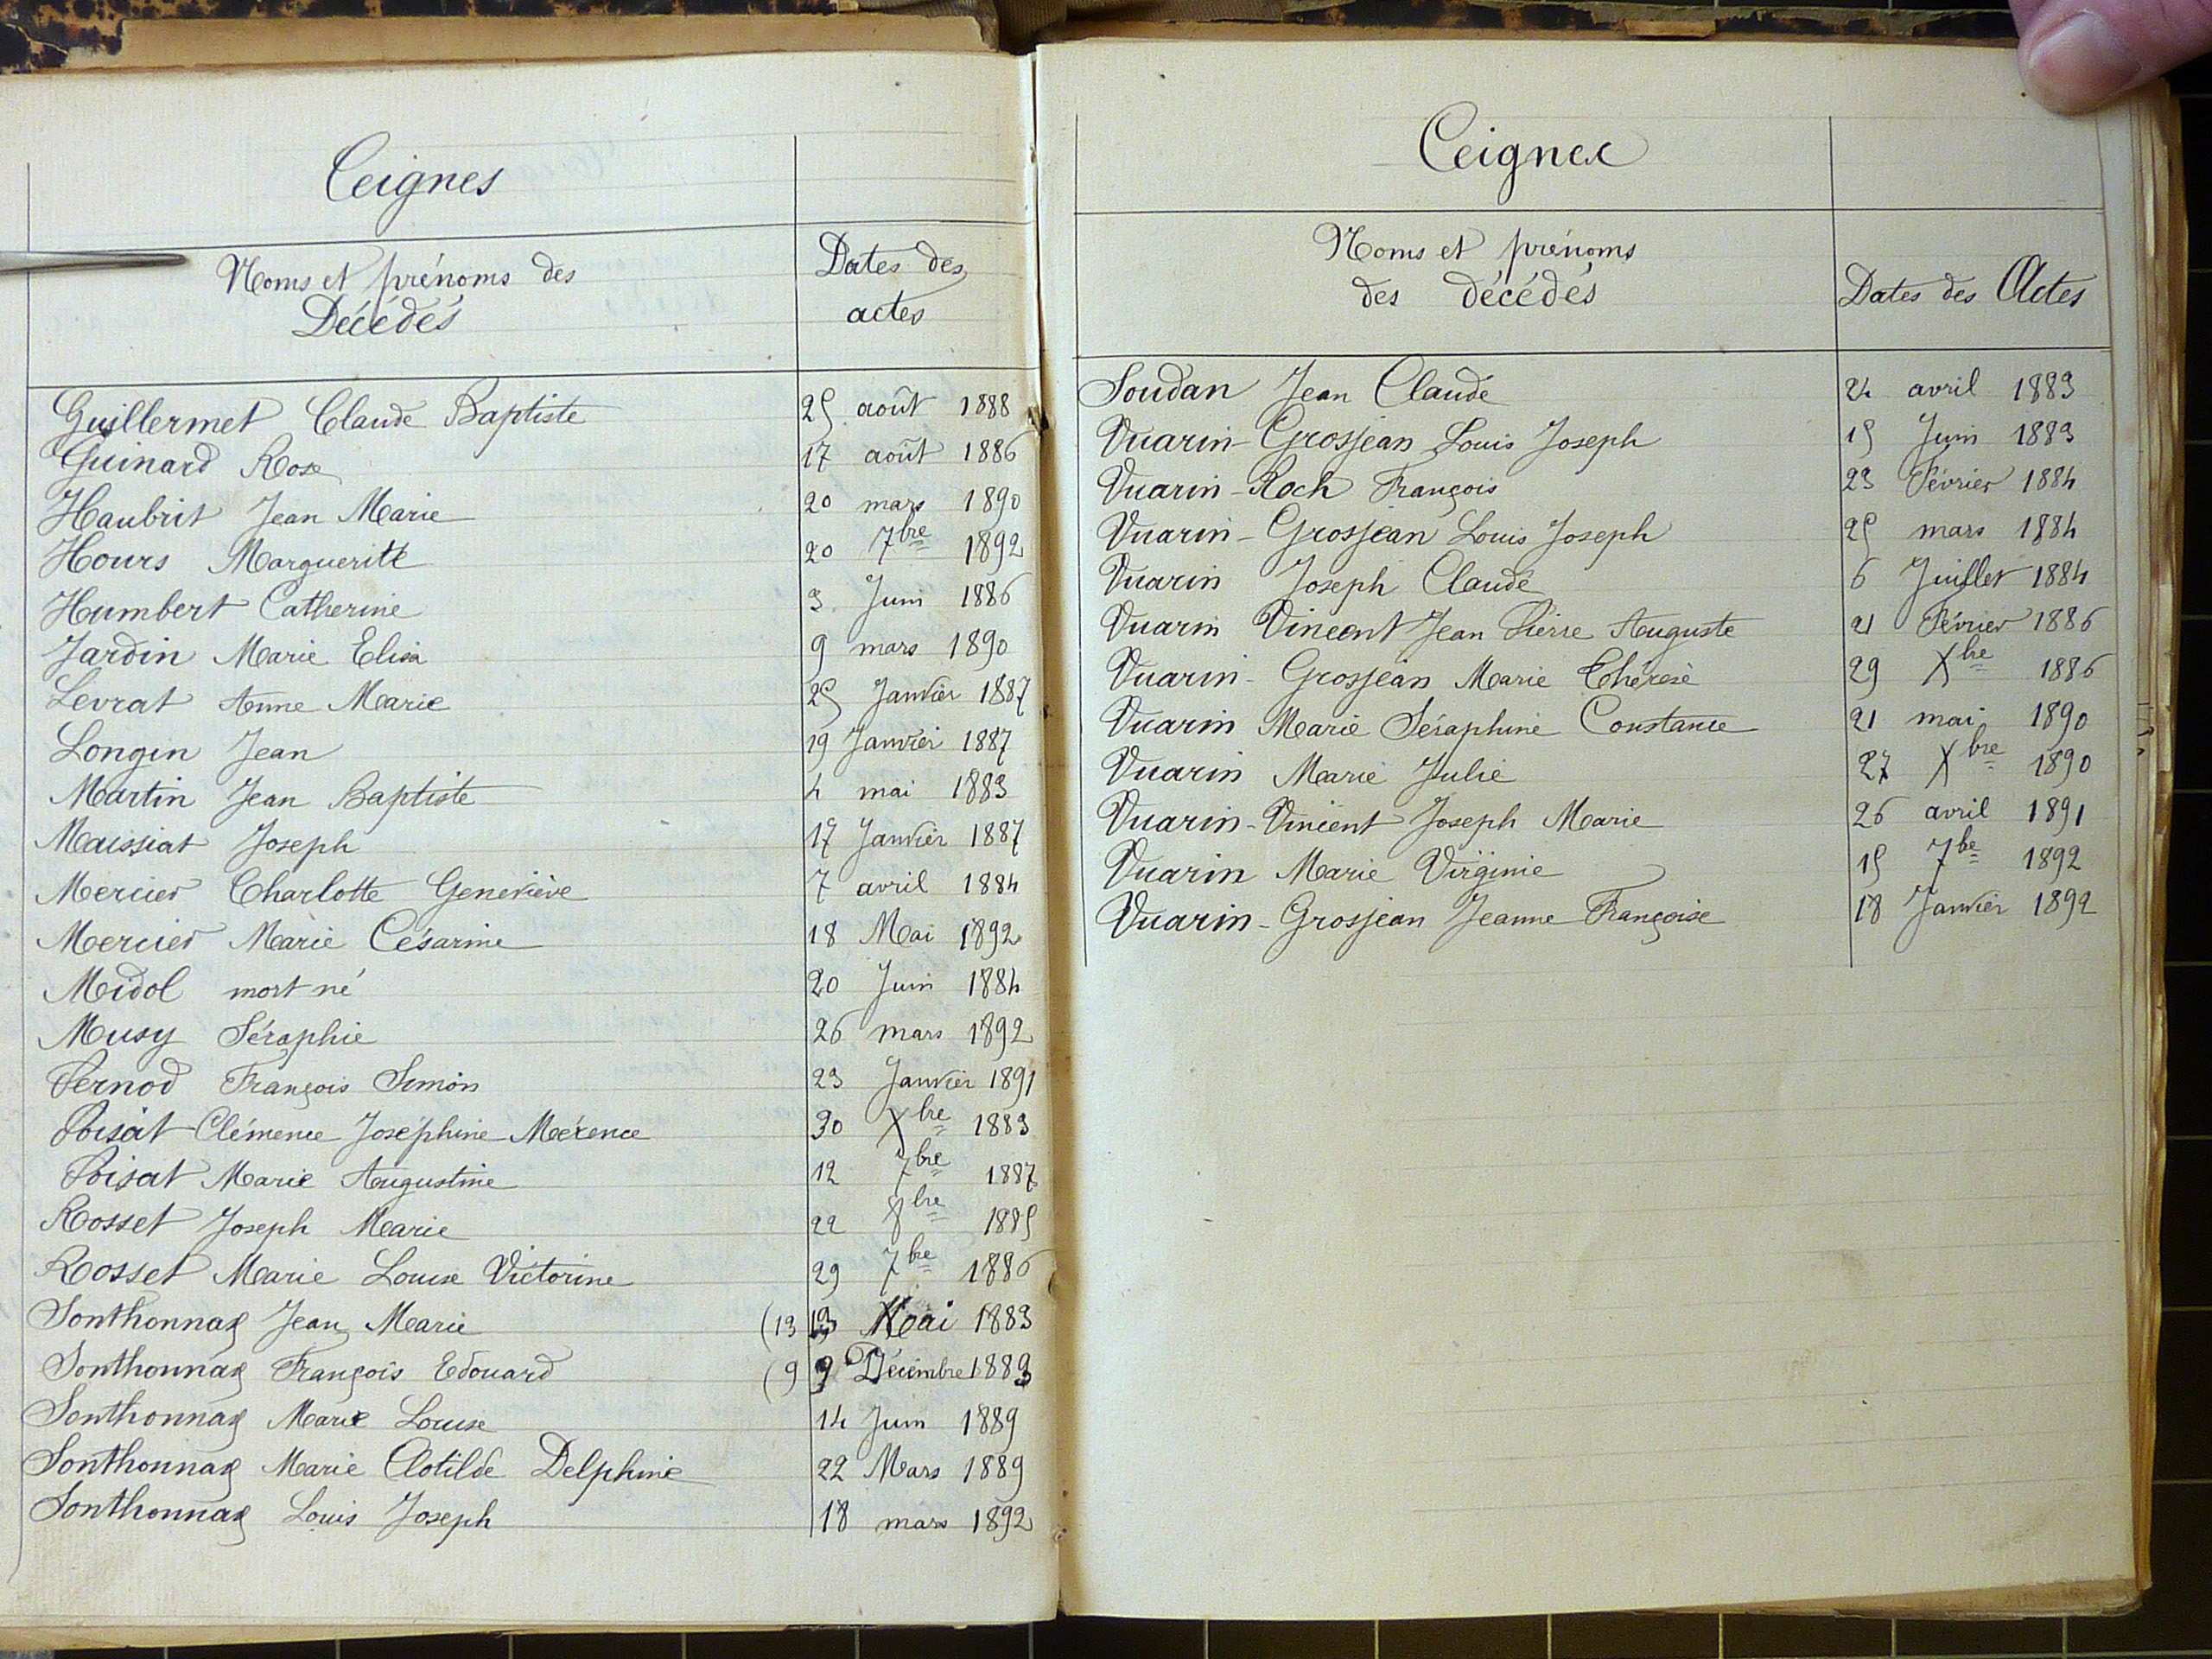 Ceignes
Noms et prénoms des
Décédés
Dates des
actes
Guillermet Claude Baptiste 25 août 1888
Guinard Rose 17 août 1886
Haubrit Jean Marie 20 mars 1890
Hours Marguerite 20 7bre 1892
Humbert Catherine 3 Juin 1886
Jardin Marie Elisa 9 mars 1890
Levrat Anne Marie 25 Janvier 1887
Longin Jean 19 Janvier 1887
Martin Jean Baptiste 4 mai 1883
Maissiat Joseph 17 Janvier 1887
Mercier Charlotte Geneviève 7 avril 1884
Mercier Marie Césarine 18 Mai 1892
Midol mort né 20 Juin 1884
Musy Séraphie 26 mars 1892
Pernod François Simon 23 Janvier 1891
Poisat Clémence Joséphine 30 Xbre 1883
Poisat Marie Augustine 12 7bre 1887
Rosset Joseph Marie 22 8bre 1885
Rosset Marie Louise Victorine 29 7bre 1886
Sonthonnax Jean Marie (13 13 Mai 1883
Sonthonnax François Edouard (9 9 Décembre 1883
Sonthonnax Marie Louise 14 Juin 1889
Sonthonnax Marie Clotilde Delphine 22 Mars 1889
Sonthonnax Louis Joseph 18 mars 1892
Ceignes
Noms et prénoms
des décédés
Dates des Actes
Soudan Jean Claude 24 avril 1883
Vuarin-Grosjean Louis Joseph 15 Juin 1883
Vuarin-Roch François 23 Février 1884
Vuarin-Grosjean Louis Joseph 25 mars 1884
Vuarin Joseph Claude 6 Juillet 1884
Vuarin Vincent Jean Pierre Auguste 21 Février 1886
Vuarin-Grosjean Marie Thérèse 29 Xbre 1886
Vuarin Marie Séraphine Constance 21 mai 1890
Vuarin Marie Julie 27 Xbre 1890
Vuarin-Vincent Joseph Marie 26 avril 1891
Vuarin Marie Virginie 15 7bre 1892
Vuarin-Grosjean Jeanne Françoise 18 Janvier 1892